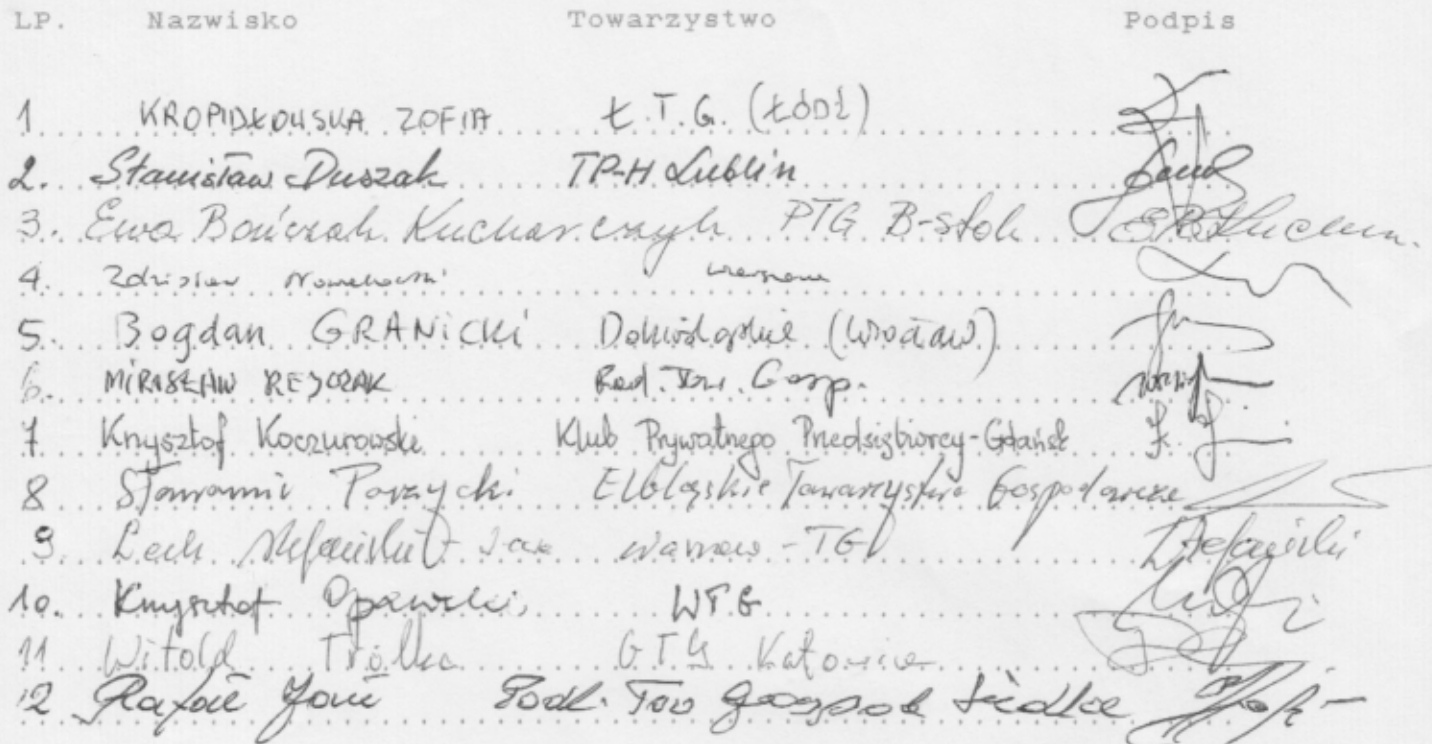 LP. Nazwisko Towarzystwo Podpis
1 KROPIDŁOWSKA ZOFIA Ł.T.G. (ŁÓDŹ)
2. Stanisław Duszak TP-H Lublin
3. Ewa Bończak Kucharczyk PTG B-stok
4. Zdzisław
5. Bogdan GRANICKI Dolnośląskie (Wrocław)
6. MIROSŁAW REJCZAK Rad. Tow. Gosp.
7 Krzysztof Koczurowski Klub Prywatnego Przedsiębiorcy-Gdańsk
8 Sławomir Parzycki Elbląskie Towarzystwo Gospodarcze
9. Lech -TG
10. Krzysztof Opawski WTG
11 Witold Trólka GTG Katowice
12 Rafał Podl. Tow Gospod Siedlce